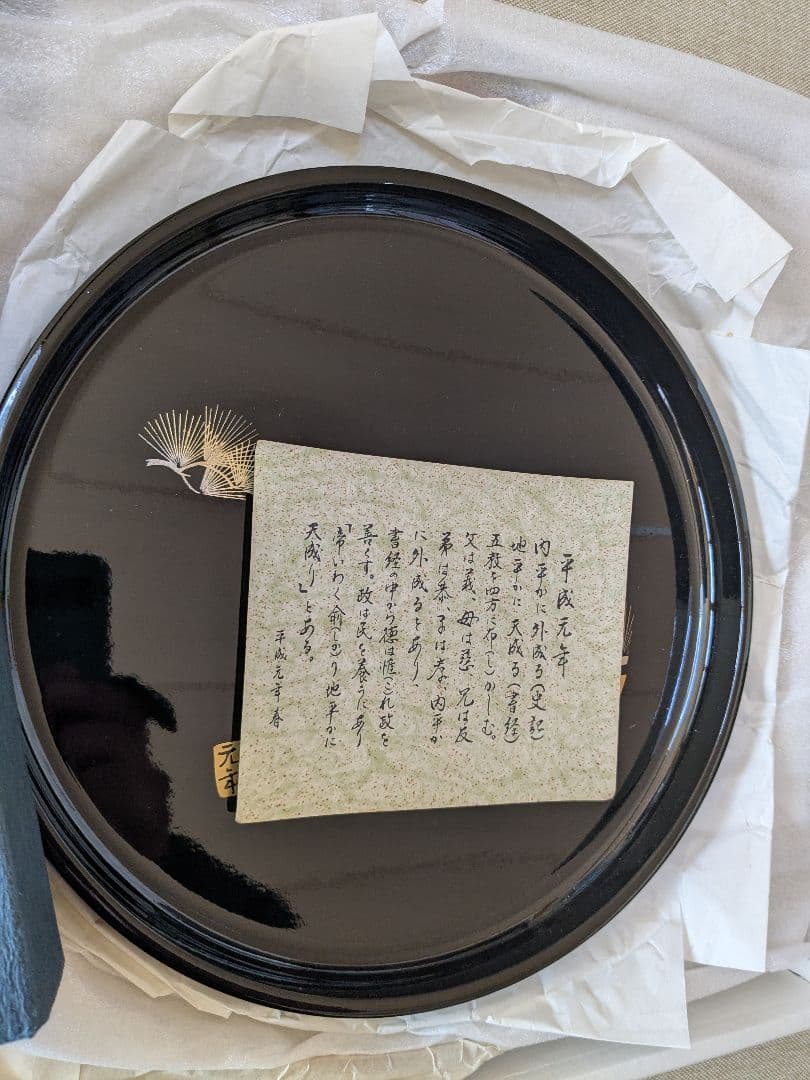 平成元年
内平かに外成る(史記)
地平かに天成る(書経)
五教を四方に布(し)かしむ。
父は義、母は慈 兄は友
弟は恭、子は孝、内平か
に外成るとあり、
書経の中から徳は惟(こ)れ政を
善くす。政は民を養うにあり
「帝いわく俞(しか)り 地平かに
天成り」とある。
平成元年 春
元年